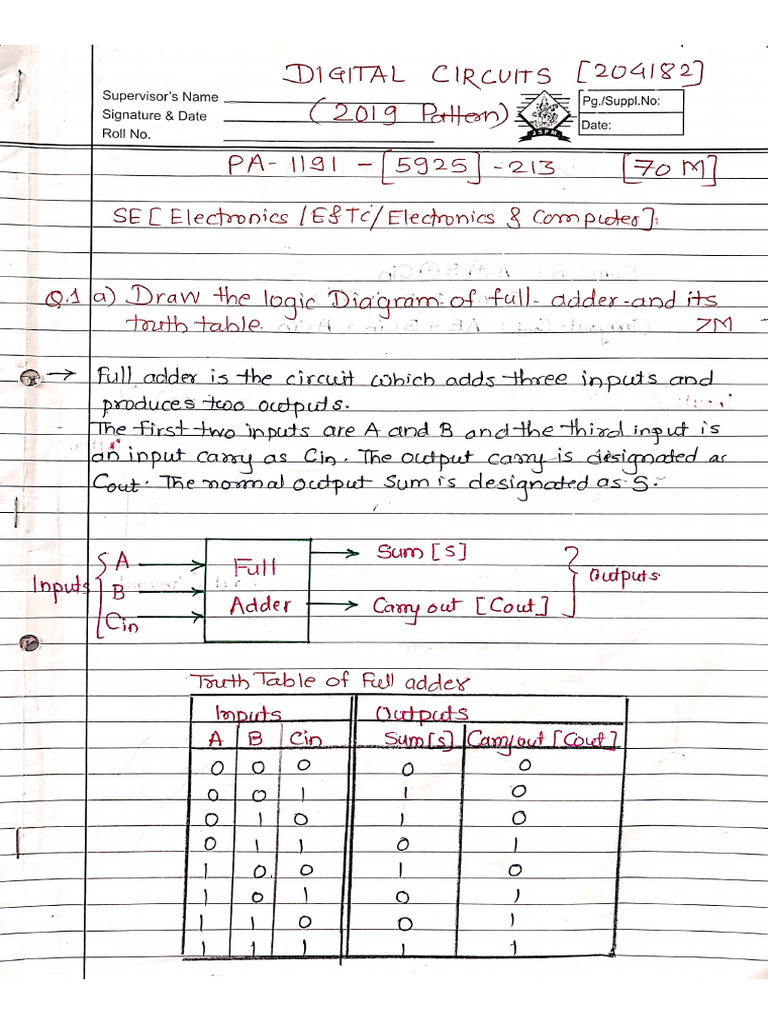 DIGITAL CIRCUITS [204182]
Supervisor's Name
Signature & Date
Roll No.
(2019 Pattern)
Pg./Suppl.No:
Date:
PA-1191-[5925]-213 [70 M]
SE [Electronics /E&Tc/Electronics & Computer]:
Q.1 a) Draw the logic Diagram of full-adder and its
truth table. 7M
→ Full adder is the circuit which adds three inputs and
produces two outputs.
The first two inputs are A and B and the third input is
an input carry as Cin. The output carry is designated as
Cout. The normal output Sum is designated as S.
Inputs
A
B
Cin
Full
Adder
Sum [S]
Carry out [Cout]
Outputs
Truth Table of Full adder
Inputs Outputs
A B Cin Sum[s] Carry out [Cout]
0 0 0 0 0
0 0 1 1 0
0 1 0 1 0
0 1 1 0 1
1 0 0 1 0
1 0 1 0 1
1 1 0 0 1
1 1 1 1 1